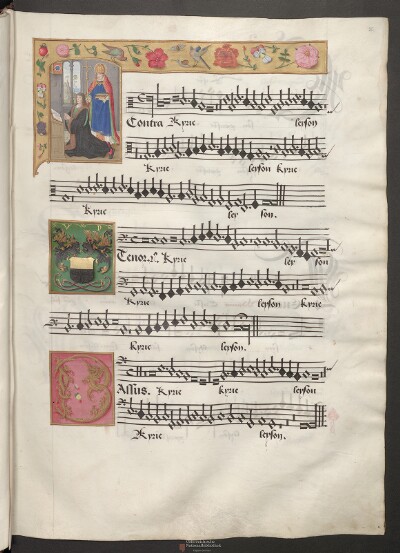 Contra Kyrie leyson
Kyrie leyson kyrie
Kyrie ley son.
Tenor. Kyrie ley son
Kyrie leyson kyrie
kyrie leyson.
Assus. Kyrie kyrie leyson
Kyrie leyson.